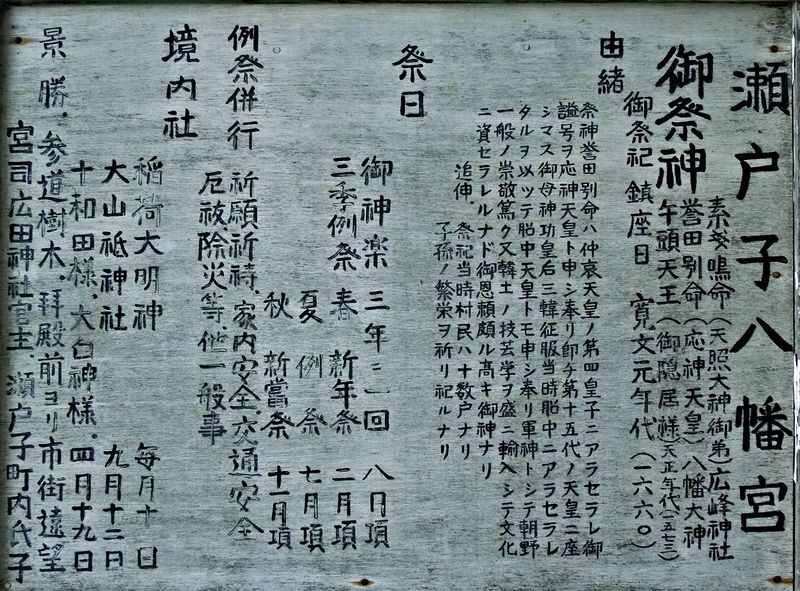 瀬戸子八幡宮
御祭神
素戔嗚命(天照大神御弟)広峰神社
誉田別命(応神天皇)八幡大神
午頭天王(御隠居様)(天正年代(一五七三)
御祭祀 鎮座日 寛文元年代(一六六〇)
由緒
祭神誉田別命ハ仲哀天皇ノ第四皇子ニアラセラレ御
諡号ヲ応神天皇ト申シ奉リ即チ第十五代ノ天皇ニ座
シマス御母神功皇后三韓征服当時胎中ニアラセラレ
タルヲ以ッテ胎中天皇トモ申シ奉リ軍神トシテ朝野
一般ノ崇敬篤ク又韓土ノ技芸学ヲ盛ニ輸入シテ文化
ニ資セラレルナド御恩頼頗ル高キ御神ナリ
追伸、祭祀当時村民ハ十数戸ナリ
子孫ノ繁栄ヲ祈リ祀ルナリ
祭日
御神楽 三年ニ一回 八月項
三季例祭 春 新年祭 二月項
夏 例祭 七月項
秋 新嘗祭 十一月項
例祭併行 祈願祈祷、家内安全、交通安全
厄祓、除災等、他一般事
境内社
稲荷大明神 毎月十日
大山祗神社 九月十二日
十和田様、大白神様、四月十九日
景勝、参道樹木、拝殿前ヨリ市街遠望
宮司広田神社宮主、瀬戸子町内氏子